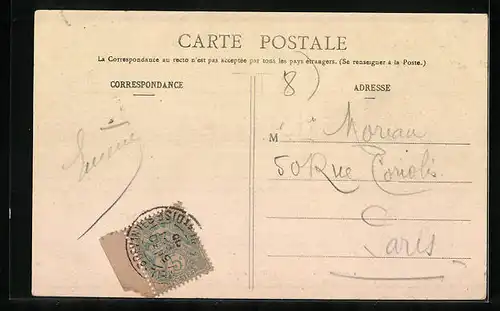 CARTE POSTALE
La Correspondance au recto n'est pas acceptée par tout les pays étrangers. (Se renseigner à la Poste.)
CORRESPONDANCE
ADRESSE
8)
M Moreau
50 Rue Coriolis
Paris